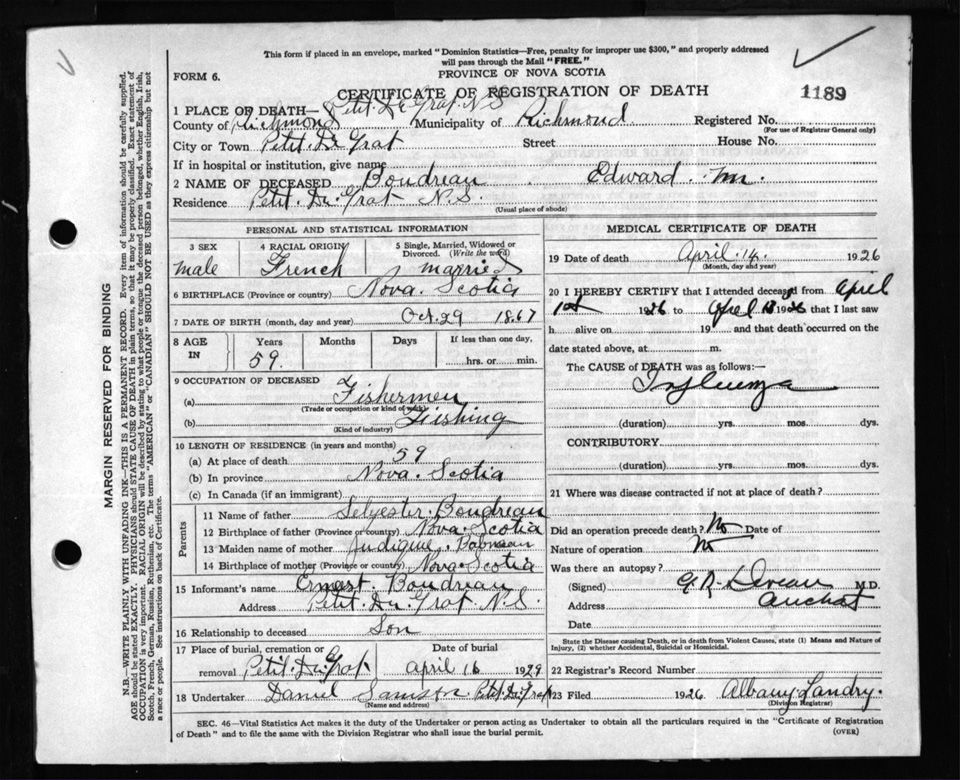 This form if placed in an envelope, marked "Dominion Statistics—Free, penalty for improper use $300," and properly addressed
will pass through the Mail "FREE."
FORM 6.
PROVINCE OF NOVA SCOTIA
CERTIFICATE OF REGISTRATION OF DEATH
1189
1 PLACE OF DEATH— Petit. De Grat. N.S
County of Richmond Municipality of Richmond Registered No.
(For use of Registrar General only)
City or Town Petit. De Grat Street House No.
If in hospital or institution, give name
2 NAME OF DECEASED Boudreau Edward. Mr.
Residence Petit. De Grat N.S.
(Usual place of abode)
PERSONAL AND STATISTICAL INFORMATION
3 SEX 4 RACIAL ORIGIN 5 Single, Married, Widowed or Divorced. (Write the word)
male French married
6 BIRTHPLACE (Province or country) Nova. Scotia
7 DATE OF BIRTH (month, day and year) Oct. 29 1867
8 AGE IN Years Months Days If less than one day,
59. hrs. or min.
9 OCCUPATION OF DECEASED
(a) Fishermen
(Trade or occupation or kind of work)
(b) Fishing
(Kind of industry)
10 LENGTH OF RESIDENCE (in years and months)
(a) At place of death 59
(b) In province Nova. Scotia
(c) In Canada (if an immigrant)
Parents
11 Name of father Selyester Boudreau
12 Birthplace of father (Province or country) Nova. Scotia
13 Maiden name of mother Judique
14 Birthplace of mother (Province or country) Nova. Scotia
15 Informant's name Ernest. Boudreau
Address Petit. De Grat N.S.
16 Relationship to deceased Son
17 Place of burial, cremation or removal Petit. De Grat Date of burial April 16 1929
18 Undertaker Daniel Samson Petit. De Grat
(Name and address)
MEDICAL CERTIFICATE OF DEATH
19 Date of death April. 14. 1926
(Month, day and year)
20 I HEREBY CERTIFY that I attended deceased from April
1st 1926 to April 1926 that I last saw
h alive on 19 and that death occurred on
date stated above, at m.
The CAUSE of DEATH was as follows:—
Influenza
(duration) yrs. mos. dys.
CONTRIBUTORY
(duration) yrs. mos. dys.
21 Where was disease contracted if not at place of death?
Did an operation precede death? No Date of
Nature of operation No
Was there an autopsy?
(Signed) M.D.
Address
Date
State the Disease causing Death, or in death from Violent Causes, state (1) Means and Nature of
Injury, (2) whether Accidental, Suicidal or Homicidal.
22 Registrar's Record Number
23 Filed 1926 Albany Landry.
(Division Registrar)
SEC. 46—Vital Statistics Act makes it the duty of the Undertaker or person acting as Undertaker to obtain all the particulars required in the "Certificate of Registration
of Death" and to file the same with the Division Registrar who shall issue the burial permit.
(OVER)
MARGIN RESERVED FOR BINDING
N.B.—WRITE PLAINLY WITH UNFADING INK—THIS IS A PERMANENT RECORD. Every item of information should be carefully supplied.
AGE should be stated EXACTLY. PHYSICIANS should STATE CAUSE OF DEATH in plain terms, so that it may be properly classified. Exact statement of
OCCUPATION is very important. RACIAL ORIGIN will be described by stating to what people or tongue the deceased person belonged, whether English, Irish,
Scotch, French, German, Russian, Ruthenian, etc. The terms "AMERICAN" or "CANADIAN" SHOULD NOT BE USED as they express citizenship but not
a race or people. See instructions on back of Certificate.